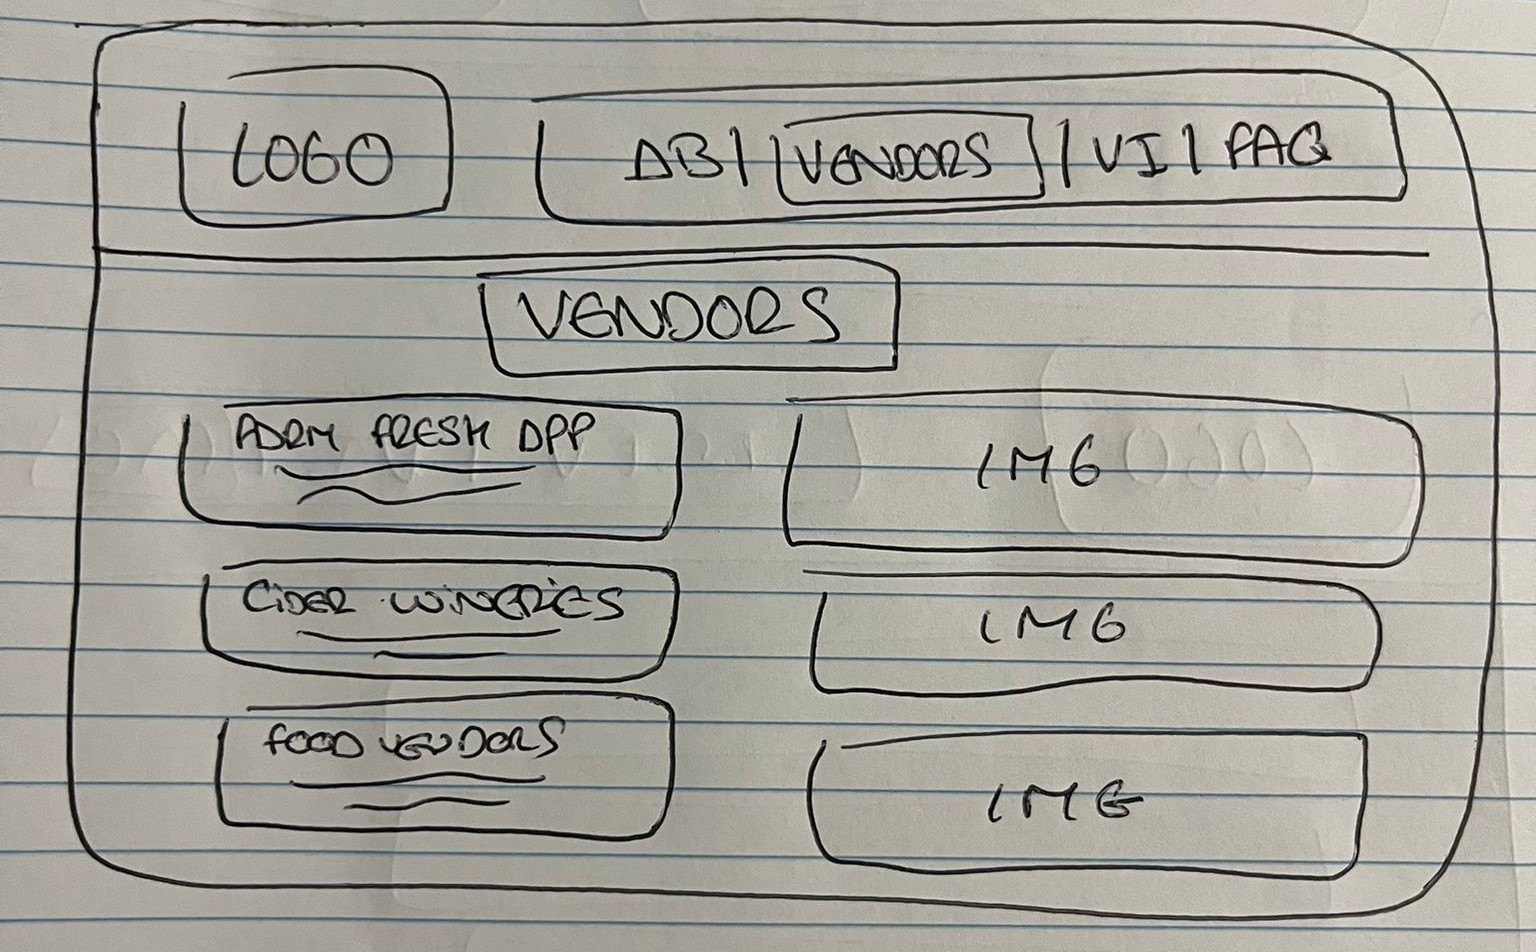 LOGO
AB | VENDORS | VI | FAQ
VENDORS
FRESH
IMG
CIDER WINERIES
IMG
FOOD VENDORS
IMG